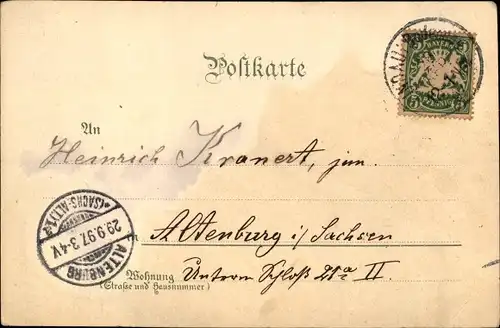 Postkarte
BAYERN
5 5
PFENNIG
An
Heinrich Kranert, jun.
ALTENBURG
(SACHS-ALT.)
29.9.97. 3-4V.
Altenburg i/ Sachsen
Wohnung
(Straße und Hausnummer)
Unterm Schloß 21a II.